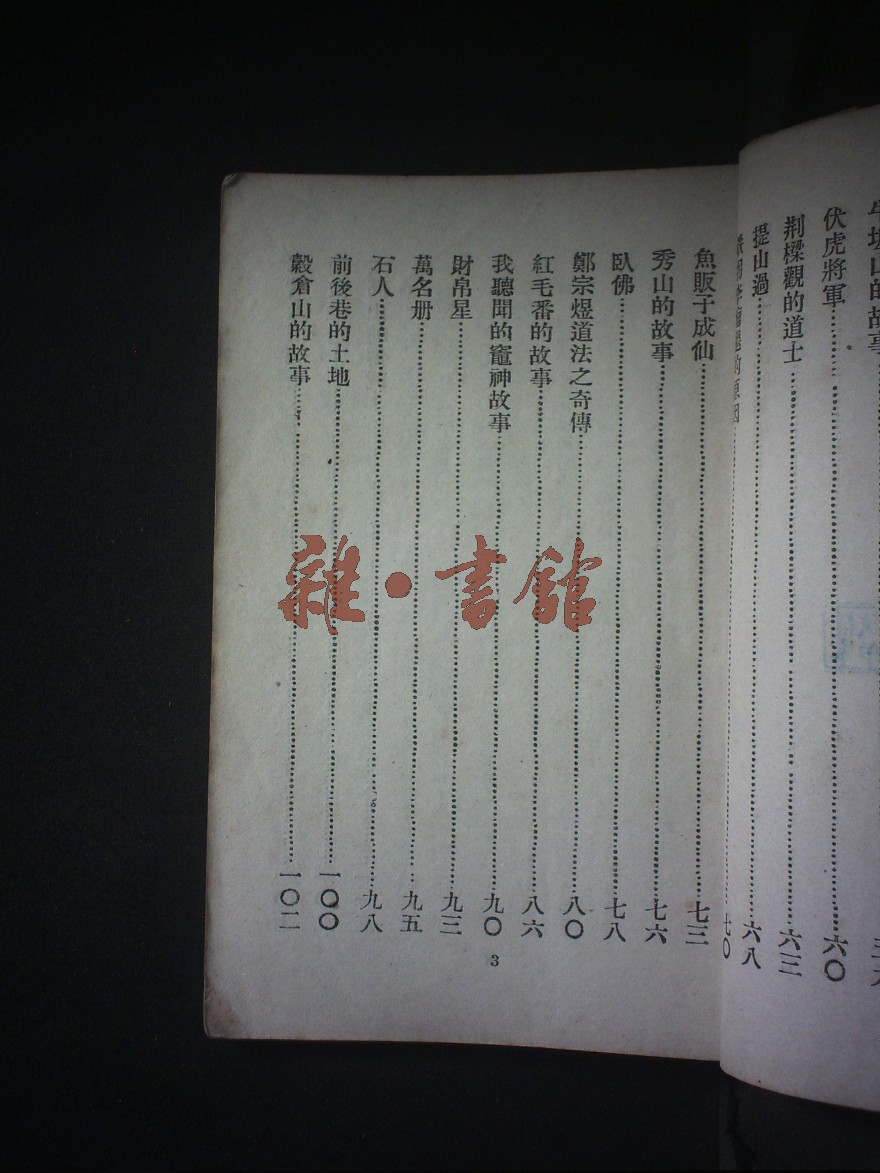 山的故事
伏虎將軍……六〇
荆樑觀的道士……六三
提山過……六八
的原因……七〇
魚販子成仙……七三
秀山的故事……七六
臥佛……七八
鄭宗煜道法之奇傳……八〇
紅毛番的故事……八六
我聽聞的竈神故事……九〇
財帛星……九三
萬名册……九五
石人……九八
前後巷的土地……一〇〇
穀倉山的故事……一〇二
3
雜·書館